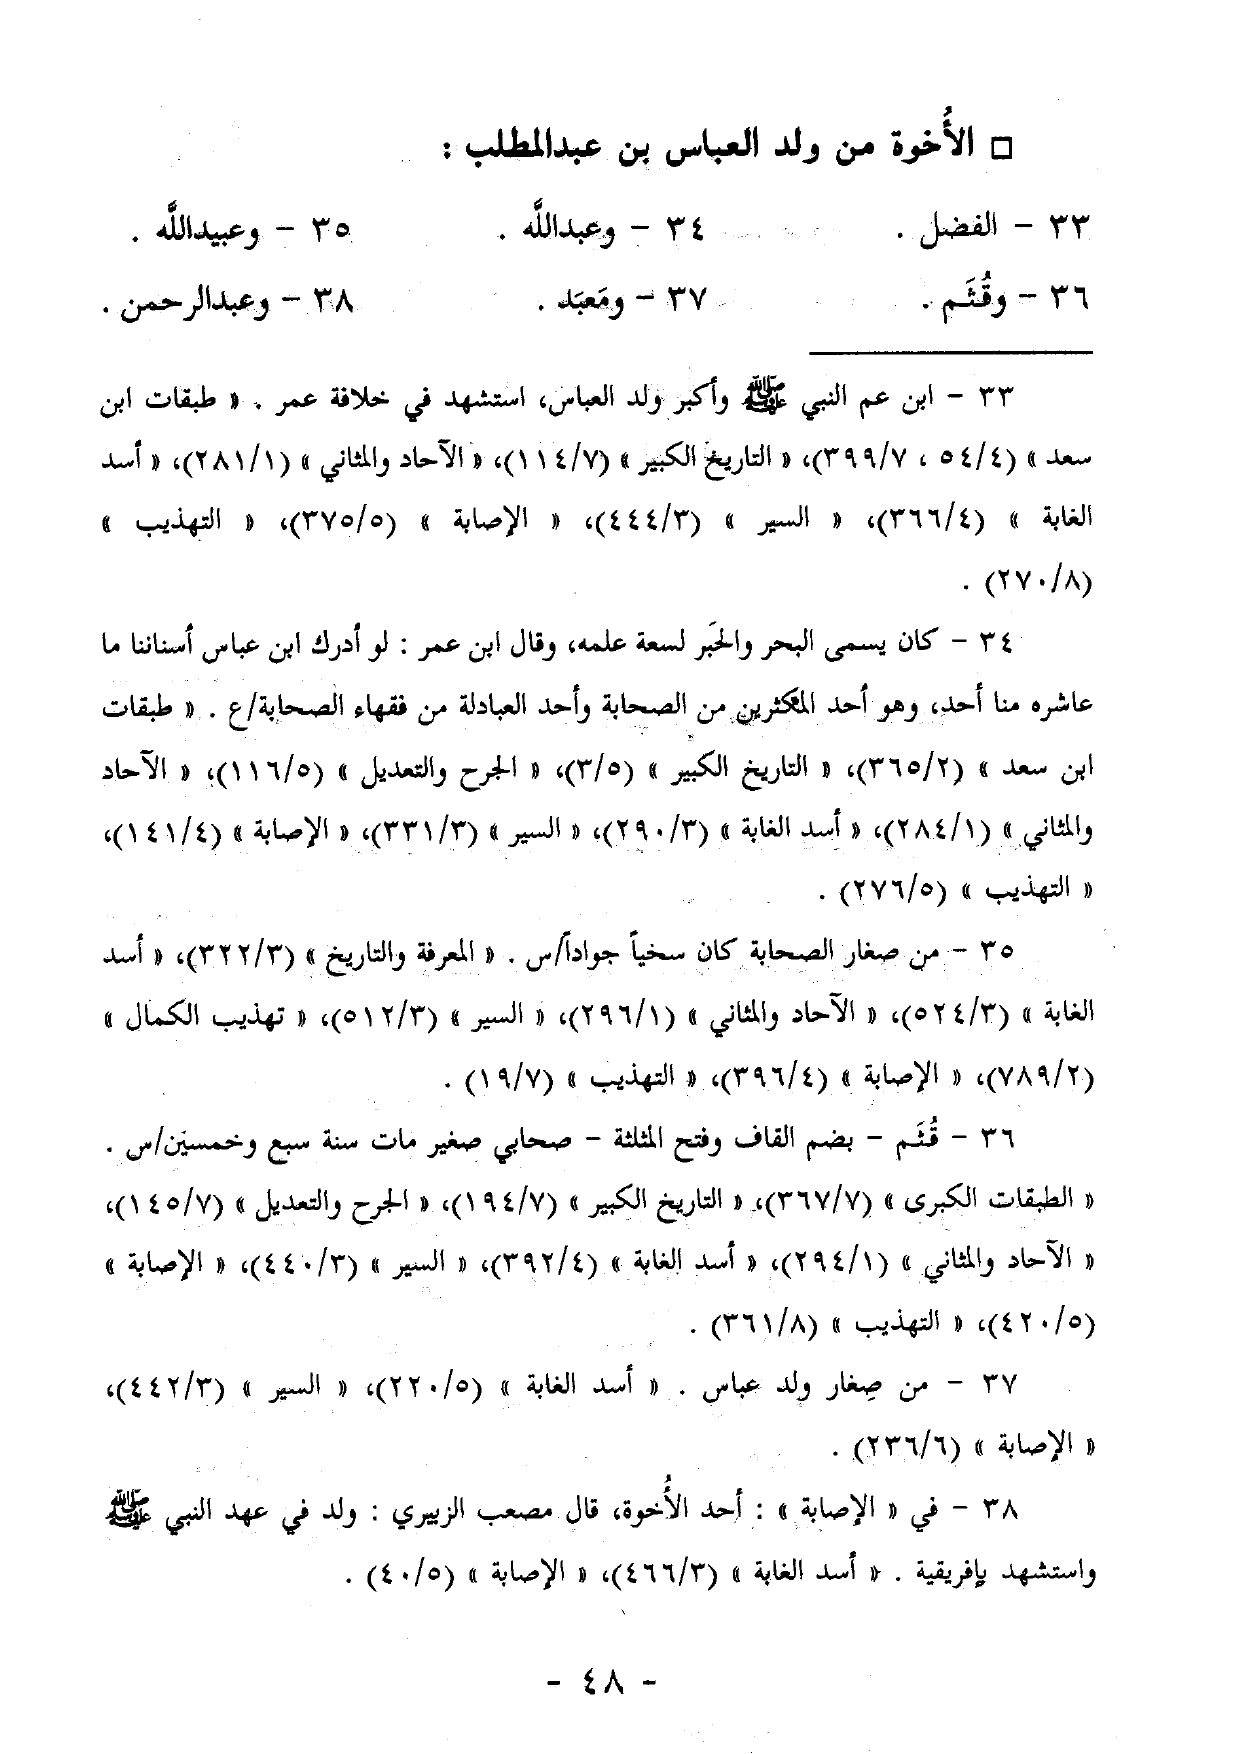 □ الأُخوة من ولد العباس بن عبدالمطلب :
٣٣ - الفضل . ٣٤ - وعبداللَّه . ٣٥ - وعبيداللَّه .
٣٦ - وقُثَم . ٣٧ - ومَعبَد . ٣٨ - وعبدالرحمن .
٣٣ - ابن عم النبي ﷺ وأكبر ولد العباس، استشهد في خلافة عمر . « طبقات ابن
سعد » (٥٤/٤ ، ٣٩٩/٧)، « التاريخ الكبير » (١١٤/٧)، « الآحاد والمثاني » (٢٨١/١)، « أسد
الغابة » (٣٦٦/٤)، « السير » (٤٤٤/٣)، « الإصابة » (٣٧٥/٥)، « التهذيب »
(٢٧٠/٨) .
٣٤ - كان يسمى البحر والحَبر لسعة علمه، وقال ابن عمر : لو أدرك ابن عباس أسناننا ما
عاشره منا أحد، وهو أحد المكثرين من الصحابة وأحد العبادلة من فقهاء الصحابة/ع . « طبقات
ابن سعد » (٣٦٥/٢)، « التاريخ الكبير » (٣/٥)، « الجرح والتعديل » (١١٦/٥)، « الآحاد
والمثاني » (٢٨٤/١)، « أسد الغابة » (٢٩٠/٣)، « السير » (٣٣١/٣)، « الإصابة » (١٤١/٤)،
« التهذيب » (٢٧٦/٥) .
٣٥ - من صغار الصحابة كان سخياً جواداً/س . « المعرفة والتاريخ » (٣٢٢/٣)، « أسد
الغابة » (٥٢٤/٣)، « الآحاد والمثاني » (٢٩٦/١)، « السير » (٥١٢/٣)، « تهذيب الكمال »
(٧٨٩/٢)، « الإصابة » (٣٩٦/٤)، « التهذيب » (١٩/٧) .
٣٦ - قُثَم - بضم القاف وفتح المثلثة - صحابي صغير مات سنة سبع وخمسين/س .
« الطبقات الكبرى » (٣٦٧/٧)، « التاريخ الكبير » (١٩٤/٧)، « الجرح والتعديل » (١٤٥/٧)،
« الآحاد والمثاني » (٢٩٤/١)، « أسد الغابة » (٣٩٢/٤)، « السير » (٤٤٠/٣)، « الإصابة »
(٤٢٠/٥)، « التهذيب » (٣٦١/٨) .
٣٧ - من صِغار ولد عباس . « أسد الغابة » (٢٢٠/٥)، « السير » (٤٤٢/٣)،
« الإصابة » (٢٣٦/٦) .
٣٨ - في « الإصابة » : أحد الأُخوة، قال مصعب الزبيري : ولد في عهد النبي ﷺ
واستشهد بإفريقية . « أسد الغابة » (٤٦٦/٣)، « الإصابة » (٤٠/٥) .
- ٤٨ -